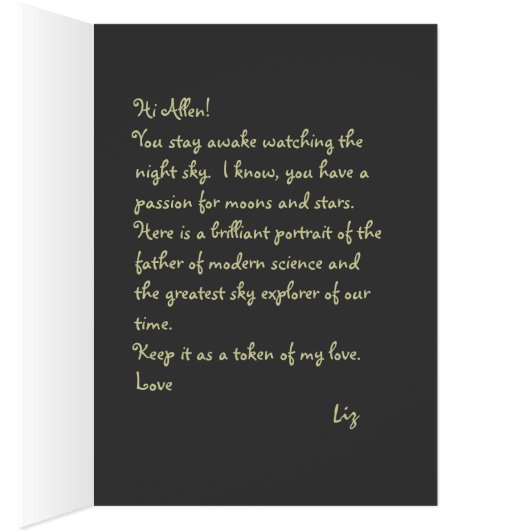 Hi Allen!
You stay awake watching the
night sky. I know, you have a
passion for moons and stars.
Here is a brilliant portrait of the
father of modern science and
the greatest sky explorer of our
time.
Keep it as a token of my love.
Love
Liz